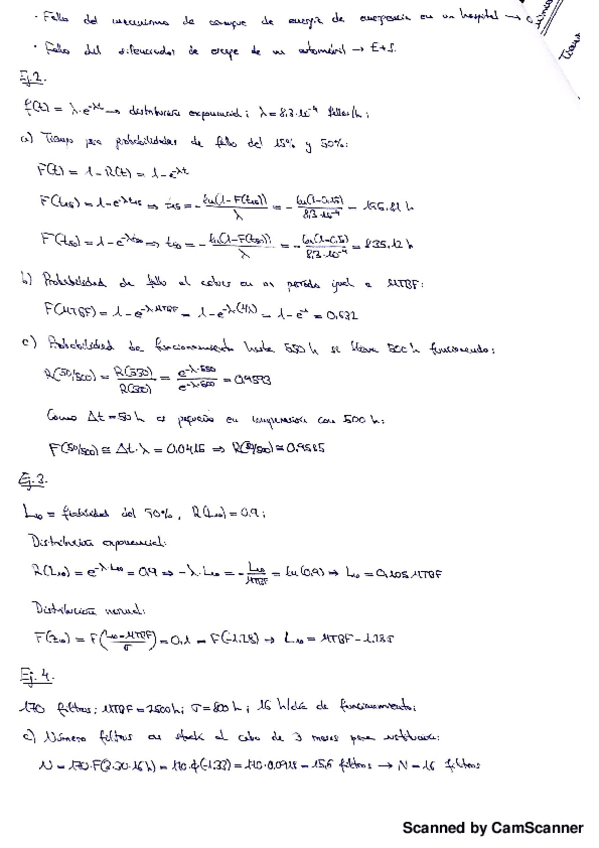 · Fallo del mecanismo de arranque de energía de emergencia en un hospital →
· Fallo del silenciador de escape de un automóvil → E+S.
Ej. 2.
f(t) = λ·e^-λt → distribución exponencial; λ = 8,3·10^-4 fallos/h;
a) Tiempo para probabilidades de fallo del 15% y 50%:
F(t) = 1 - R(t) = 1 - e^-λt
F(t15) = 1 - e^-λt15 ⇒ t15 = - ln(1-F(t15))/λ = - ln(1-0.15)/8,3·10^-4 = 195.81 h
F(t50) = 1 - e^-λt50 ⇒ t50 = - ln(1-F(t50))/λ = - ln(1-0.5)/8,3·10^-4 = 835.12 h
b) Probabilidad de fallo al estar en un periodo igual a MTBF:
F(MTBF) = 1 - e^-λ·MTBF = 1 - e^-λ·(1/λ) = 1 - e^-1 = 0,632
c) Probabilidad de funcionamiento hasta 550 h si lleva 500 h funcionando:
R(50/500) = R(550)/R(500) = e^-λ·550/e^-λ·500 = 0,9593
Como Δt = 50 h es pequeño en comparación con 500 h:
F(50/500) ≅ Δt·λ = 0,0415 ⇒ R(50/500) ≅ 0,9585
Ej. 3.
L10 = fiabilidad del 90%, R(L10) = 0.9;
Distribución exponencial:
R(L10) = e^-λ·L10 = 0.9 ⇒ -λ·L10 = - L10/MTBF = ln(0.9) ⇒ L10 = 0,105 MTBF
Distribución normal:
F(z10) = F((L10-MTBF)/σ) = 0.1 = F(-1.28) → L10 = MTBF - 1.28σ
Ej. 4.
170 filtros; MTBF = 2500 h; σ = 800 h; 16 h/día de funcionamiento;
a) Número filtros en stock al cabo de 3 meses para sustituir:
N = 170·F(3·30·16 h) = 170·ϕ(-1.33) = 170·0,0918 = 15,6 filtros → N = 16 filtros
Scanned by CamScanner